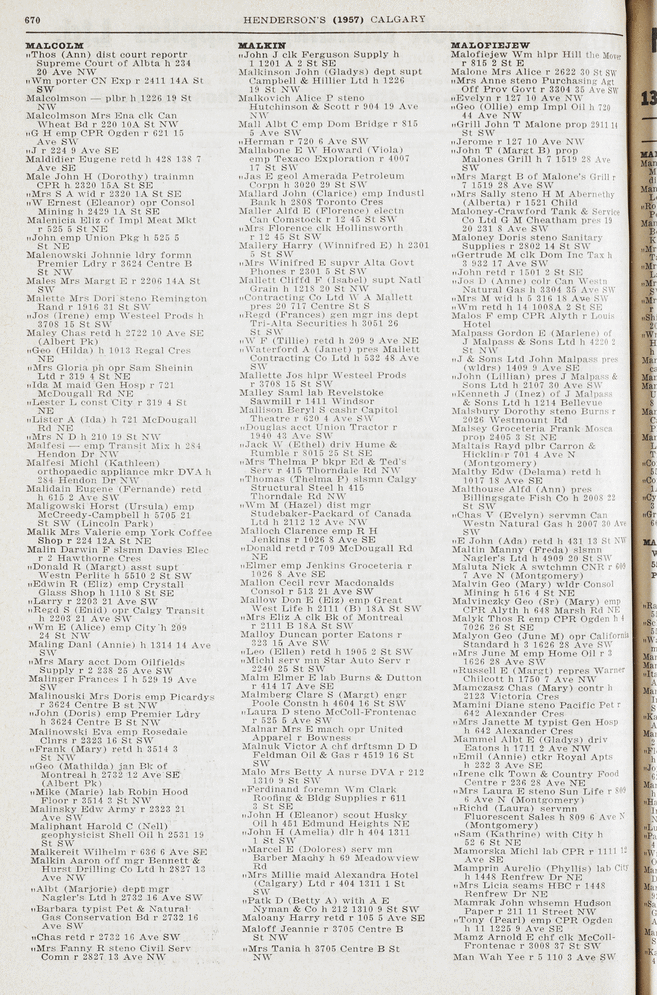 670
HENDERSON'S (1957) CALGARY
MALCOLM
„Thos (Ann) dist court reportr
Supreme Court of Albta h 234
20 Ave NW
„Wm porter CN Exp r 2411 14A St
SW
Malcolmson — plbr h 1226 19 St
NW
Malcolmson Mrs Ena clk Can
Wheat Bd r 220 10A St NW
„G H emp CPR Ogden r 621 15
Ave SW
„J r 224 9 Ave SE
Maldidier Eugene retd h 428 138 7
Ave SE
Male John H (Dorothy) trainmn
CPR h 2320 15A St SE
„Mrs S A wid r 2320 1A St SE
„W Ernest (Eleanor) opr Consol
Mining h 2429 1A St SE
Malenicia Eliz of Impl Meat Mkt
r 525 5 St NE
„John emp Union Pkg h 525 5
St NE
Malenowski Johnnie ldry formn
Premier Ldry r 3624 Centre B
St NW
Males Mrs Margt E r 2206 14A St
SW
Malette Mrs Dori steno Remington
Rand r 1916 31 St SW
„Jos (Irene) emp Westeel Prods h
3708 15 St SW
Maley Chas retd h 2722 10 Ave SE
(Albert Pk)
„Geo (Hilda) h 1013 Regal Cres
NE
„Mrs Gloria ph opr Sam Sheinin
Ltd r 319 4 St NE
„Ida M maid Gen Hosp r 721
McDougall Rd NE
„Lester L const City r 319 4 St
NE
„Lister A (Ida) h 721 McDougall
Rd NE
„Mrs N D h 210 19 St NW
Malfesi — emp Transit Mix h 284
Hendon Dr NW
Malfesi Michl (Kathleen)
orthopaedic appliance mkr DVA h
284 Hendon Dr NW
Malidain Eugene (Fernande) retd
h 615 2 Ave SW
Maligowski Horst (Ursula) emp
McCreedy-Campbell h 5705 21
St SW (Lincoln Park)
Malik Mrs Valerie emp York Coffee
Shop r 224 12A St NE
Malin Darwin F slsmn Davies Elec
r 2 Hawthorne Cres
„Donald R (Margt) asst supt
Westn Perlite h 5510 2 St SW
„Edwin R (Eliz) emp Crystal
Glass Shop h 1110 8 St SE
„Larry r 2203 21 Ave SW
„Regd S (Enid) opr Calgy Transit
h 2203 21 Ave SW
„Wm E (Alice) emp City h 209
24 St NW
Maling Danl (Annie) h 1314 14 Ave
SW
„Mrs Mary acct Dom Oilfields
Supply r 2 238 25 Ave SW
Malinger Frances I h 529 19 Ave
SW
Malinouski Mrs Doris emp Picardys
r 3624 Centre B st NW
„John (Doris) emp Premier Ldry
h 3624 Centre B St NW
Malinowski Eva emp Rosedale
Clnrs r 2323 16 St SW
„Frank (Mary) retd h 3514 3
St NW
„Geo (Mathilda) jan Bk of
Montreal h 2732 12 Ave SE
(Albert Pk)
„Mike (Marie) lab Robin Hood
Floor r 3514 3 St NW
Malinsky Edw Army r 2323 21
Ave SW
Maliphant Harold C (Nell)
geophysicist Shell Oil h 2531 19
St SW
Malkereit Wilhelm r 636 6 Ave SE
Malkin Aaron off mgr Bennett &
Hurst Drilling Co Ltd h 2827 13
Ave NW
„Albt (Marjorie) dept mgr
Nagler's Ltd h 2732 16 Ave SW
„Barbara typist Pet & Natural
Gas Conservation Bd r 2732 16
Ave SW
„Chas retd r 2732 16 Ave SW
„Mrs Fanny R steno Civil Serv
Comn r 2827 13 Ave NW
MALKIN
„John J clk Ferguson Supply h
1 1201 A 2 St SE
Malkinson John (Gladys) dept supt
Campbell & Hillier Ltd h 1226
19 St NW
Malkovich Alice P steno
Hutchinson & Scott r 904 19 Ave
NW
Mall Albt C emp Dom Bridge r 815
5 Ave SW
„Herman r 720 6 Ave SW
Mallabone E W Howard (Viola)
emp Texaco Exploration r 4007
17 St SW
„Jas E geol Amerada Petroleum
Corpn h 3020 29 St SW
Mallard John (Clarice) emp Industl
Bank h 2808 Toronto Cres
Maller Alfd E (Florence) electn
Can Comstock r 12 45 St SW
„Mrs Florence clk Hollinsworth
r 12 45 St SW
Mallery Harry (Winnifred E) h 2301
5 St SW
„Mrs Winifred E supvr Alta Govt
Phones r 2301 5 St SW
Mallett Cliffd F (Isabel) supt Natl
Grain h 1218 20 St NW
„Contracting Co Ltd W A Mallett
pres 20 717 Centre St S
„Regd (Frances) gen mgr ins dept
Tri-Alta Securities h 3051 26
St SW
„W F (Tillie) retd h 209 9 Ave NE
„Waterford A (Janet) pres Mallett
Contracting Co Ltd h 532 48 Ave
SW
Mallette Jos hlpr Westeel Prods
r 3708 15 St SW
Malley Saml lab Revelstoke
Sawmill r 1411 Windsor
Mallison Beryl S cashr Capitol
Theatre r 620 4 Ave SW
„Douglas acct Union Tractor r
1940 43 Ave SW
„Jack W (Ethel) driv Hume &
Rumble r 8015 25 St SE
„Mrs Thelma P bkpr Ed & Ted's
Serv r 415 Thorndale Rd NW
„Thomas (Thelma P) slsmn Calgy
Structural Steel h 415
Thorndale Rd NW
„Wm M (Hazel) dist mgr
Studebaker-Packard of Canada
Ltd h 2112 12 Ave NW
Malloch Clarence emp R H
Jenkins r 1026 8 Ave SE
„Donald retd r 709 McDougall Rd
NE
„Elmer emp Jenkins Groceteria r
1026 8 Ave SE
Mallon Cecil rcvr Macdonalds
Consol r 513 21 Ave SW
Mallow Don E (Eliz) emp Great
West Life h 2111 (B) 18A St SW
„Mrs Eliz A clk Bk of Montreal
r 2111 B 18A St SW
Malloy Duncan porter Eatons r
323 15 Ave SW
„Leo (Ellen) retd h 1905 2 St SW
„Michl serv mn Star Auto Serv r
2240 25 St SW
Malm Elmer E lab Burns & Dutton
r 414 17 Ave SE
Malmberg Clare S (Margt) engr
Poole Constn h 4604 16 St SW
„Laura D steno McColl-Frontenac
r 525 5 Ave SW
Malnar Mrs E mach opr United
Apparel r Bowness
Malnuk Victor A chf drftsmn D D
Feldman Oil & Gas r 4519 16 St
SW
Malo Mrs Betty A nurse DVA r 212
1310 9 St SW
„Ferdinand foremn Wm Clark
Roofing & Bldg Supplies r 611
3 St SE
„John H (Eleanor) scout Husky
Oil h 451 Edmund Heights NE
„John H (Amelia) dlr h 404 1311
1 St SW
„Marcel E (Dolores) serv mn
Barber Machy h 69 Meadowview
Rd
„Mrs Millie maid Alexandra Hotel
(Calgary) Ltd r 404 1311 1 St
SW
„Patk D (Betty) with A E
Nyman & Co h 212 1310 9 St SW
Maloany Harry retd r 105 5 Ave SE
Maloff Jeannie r 3705 Centre B
St NW
„Mrs Tania h 3705 Centre B St
NW
MALOFIEJEW
Malofiejew Wm hlpr Hill the Mover
r 815 2 St E
Malone Mrs Alice r 2622 30 St SW
„Mrs Anne steno Purchasing Agt
Off Prov Govt r 3304 35 Ave SW
„Evelyn r 127 10 Ave NW
„Geo (Ollie) emp Impl Oil h 720
44 Ave NW
„Grill John T Malone prop 2911 14
St SW
„Jerome r 127 10 Ave NW
„John T (Margt B) prop
Malones Grill h 7 1519 28 Ave
SW
„Mrs Margt B of Malone's Grill r
7 1519 28 Ave SW
„Mrs Sally steno H M Abernethy
(Alberta) r 1521 Child
Maloney-Crawford Tank & Service
Co Ltd G M Cheatham pres 19
20 231 8 Ave SW
Maloney Doris steno Sanitary
Supplies r 2802 14 St SW
„Gertrude M clk Dom Inc Tax h
3 932 17 Ave SW
„John retd r 1501 2 St SE
„Jos D (Anne) colr Can Westn
Natural Gas h 3304 35 Ave SW
„Mrs M wid h 5 316 18 Ave SW
„Wm retd h 4 1008A 2 St SE
Malos F emp CPR Alyth r Louis
Hotel
Malpass Gordon E (Marlene) of
J Malpass & Sons Ltd h 4220 2
St NW
„J & Sons Ltd John Malpass pres
(wldrs) 1409 9 Ave SE
„John (Lillian) pres J Malpass &
Sons Ltd h 2107 30 Ave SW
„Kenneth J (Inez) of J Malpass
& Sons Ltd h 1214 Bellevue
Malsbury Dorothy steno Burns r
2026 Westmount Rd
Malsey Groceteria Frank Mosca
prop 2405 3 St NE
Maltais Rayd plbr Carron &
Hicklin r 701 4 Ave N
(Montgomery)
Maltby Edw (Delama) retd h
1017 18 Ave SE
Malthouse Alfd (Ann) pres
Billingsgate Fish Co h 2008 22
St SW
„Chas V (Evelyn) servmn Can
Westn Natural Gas h 2007 30 Ave
SW
„E John (Ada) retd h 431 13 St NW
Maltin Manny (Freda) slsmn
Nagler's Ltd h 4909 20 St SW
Maluta Nick A swtchmn CNR r 609
7 Ave N (Montgomery)
Malvin Geo (Mary) wldr Consol
Mining h 516 4 St NE
Malvinczky Geo (Sr) (Mary) emp
CPR Alyth h 648 Marsh Rd NE
Malyk Thos R emp CPR Ogden h 4
7026 26 St SE
Malyon Geo (June M) opr California
Standard h 3 1626 28 Ave SW
„Mrs June M emp Home Oil r 3
1626 28 Ave SW
„Russell E (Margt) repres Warner
Chilcott h 1750 7 Ave NW
Mamczasz Chas (Mary) contr h
2123 Victoria Cres
Mamini Diane steno Pacific Pet r
642 Alexander Cres
„Mrs Janette M typist Gen Hosp
h 642 Alexander Cres
Mammel Albt E (Gladys) driv
Eatons h 1711 2 Ave NW
„Emil (Annie) ctkr Royal Apts
h 232 3 Ave SE
„Irene clk Town & Country Food
Centre r 236 28 Ave NE
„Mrs Laura E steno Sun Life r 809
6 Ave N (Montgomery)
„Richd (Laura) servmn
Fluorescent Sales h 809 6 Ave N
(Montgomery)
„Sam (Kathrine) with City h
52 6 St NE
Mamorska Michl lab CPR r 1111 12
Ave SE
Mamprin Aurelio (Phyllis) lab City
h 1448 Renfrew Dr NE
„Mrs Licia seams HBC r 1448
Renfrew Dr NE
Mamrak John whsemn Hudson
Paper r 211 11 Street NW
„Tony (Pearl) emp CPR Ogden
h 11 1225 9 Ave SE
Mamz Arnold E chf clk McColl-
Frontenac r 3008 37 St SW
Man Wah Yee r 5 110 3 Ave SW